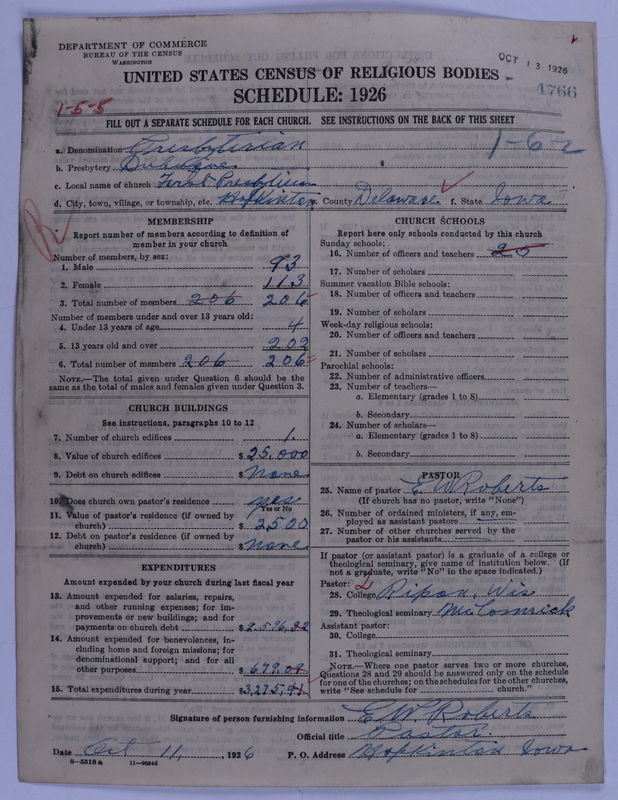 DEPARTMENT OF COMMERCE
BUREAU OF THE CENSUS
WASHINGTON
OCT 13 1926
4766
UNITED STATES CENSUS OF RELIGIOUS BODIES
SCHEDULE: 1926
1-5-5
FILL OUT A SEPARATE SCHEDULE FOR EACH CHURCH. SEE INSTRUCTIONS ON THE BACK OF THIS SHEET
1-6-2
a. Denomination Presbyterian
b. Presbytery Dubuque
c. Local name of church First Presbyterian
d. City, town, village, or township, etc. Hopkinton County Delaware f. State Iowa
R
MEMBERSHIP
Report number of members according to definition of
member in your church
Number of members, by sex:
1. Male 93
2. Female 113
3. Total number of members 206 206
Number of members under and over 13 years old:
4. Under 13 years of age 4
5. 13 years old and over 202
6. Total number of members 206 206
NOTE.—The total given under Question 6 should be
same as the total of males and females given under Question 3.
CHURCH BUILDINGS
See instructions, paragraphs 10 to 12
7. Number of church edifices 1
8. Value of church edifices $ 25,000
9. Debt on church edifices $ None
10. Does church own pastor's residence yes
Yes or No
11. Value of pastor's residence (if owned by
church) $ 2500
12. Debt on pastor's residence (if owned by
church) $ None
EXPENDITURES
Amount expended by your church during last fiscal year
13. Amount expended for salaries, repairs,
and other running expenses; for im-
provements or new buildings; and for
payments on church debt $ 2,596.32
14. Amount expended for benevolences, in-
cluding home and foreign missions; for
denominational support; and for all
other purposes $ 679.09
15. Total expenditures during year $ 3,275.41
CHURCH SCHOOLS
Report here only schools conducted by this church
Sunday schools:
16. Number of officers and teachers 20
17. Number of scholars
Summer vacation Bible schools:
18. Number of officers and teachers
19. Number of scholars
Week-day religious schools:
20. Number of officers and teachers
21. Number of scholars
Parochial schools:
22. Number of administrative officers
23. Number of teachers—
a. Elementary (grades 1 to 8)
b. Secondary
24. Number of scholars—
a. Elementary (grades 1 to 8)
b. Secondary
PASTOR
25. Name of pastor E W Roberts
(If church has no pastor, write "None")
26. Number of ordained ministers, if any, em-
ployed as assistant pastors
27. Number of other churches served by the
pastor or his assistants
If pastor (or assistant pastor) is a graduate of a college or
theological seminary, give name of institution below. (If
not a graduate, write "No" in the space indicated.)
Pastor: 2
28. College Ripon, Wis
29. Theological seminary McCormick
Assistant pastor:
30. College
31. Theological seminary
NOTE.—Where one pastor serves two or more churches,
Questions 28 and 29 should be answered only on the schedule
for one of the churches; on the schedules for the other churches,
write "See schedule for church."
Signature of person furnishing information E. W. Roberts
Official title Pastor
Date Oct 11, 1926 P. O. Address Hopkinton Iowa
8-5518a 11-9054d